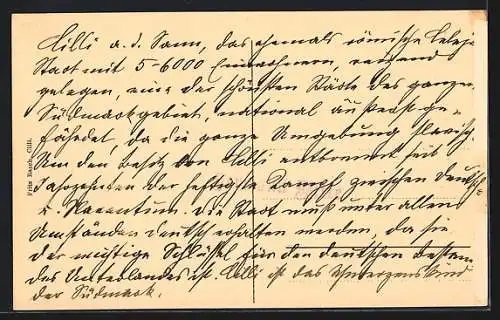 Cilli a. d. Sann, das ehemals römische Celeja
Stadt mit 5-6000 Einwohnern, reizend
gelegen, eine der schönsten Städte des ganzen
Südmarkgebiet, national äußerst ge-
fährdet, da die ganze Umgebung slavisch.
Um den Besitz von Cilli entbrennt seit
Jahrzehnten der heftigste Kampf zwischen Deutsch-
u. Slaventum. Die Stadt muß unter allen
Umständen deutsch erhalten werden, da sie
der wichtige Schlüssel für den deutschen Besitz
des Unterlandes ist. Cilli ist das Schmerzenskind
der Südmark.
Fritz Rasch, Cilli.